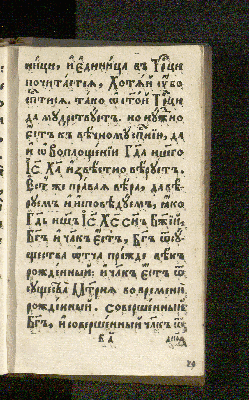 ници, и҆ є҆диница въ трⷪ҇ци
почитаєтсѧ, хотѧй оу҆бо
сп҃тисѧ. тако ѡ҆ ст҃ой трⷪ҇ци
да мудрствуєтъ. но нужно
є҆сть къ вѣчному сп҃нїю, да
и҆ ѡ҆ воплощенїи гд҇а нш҃єго
і҆с҃ ха҃ и҆звѣстно вѣруєтъ.
є҆сть же правая вѣра, да вѣ
руємъ и҆ и҆сповѣдуємъ, ꙗ҆ко
гд҇ь нш҃ъ і҆с҃ хс҃ сн҃ъ бж҃їй,
бг҃ъ и҆ чл҃къ є҆сть, бг҃ъ ѿ су
щества ѻ҆тча прежде вѣкъ
рожденный: и҆ чл҃къ є҆сть ѿ
сущєства мт҃рнѧ во времени
рожденный. совершенный
бг҃ъ, и҆ совершенный чл҃къ ѿ
в҃ а҃ души